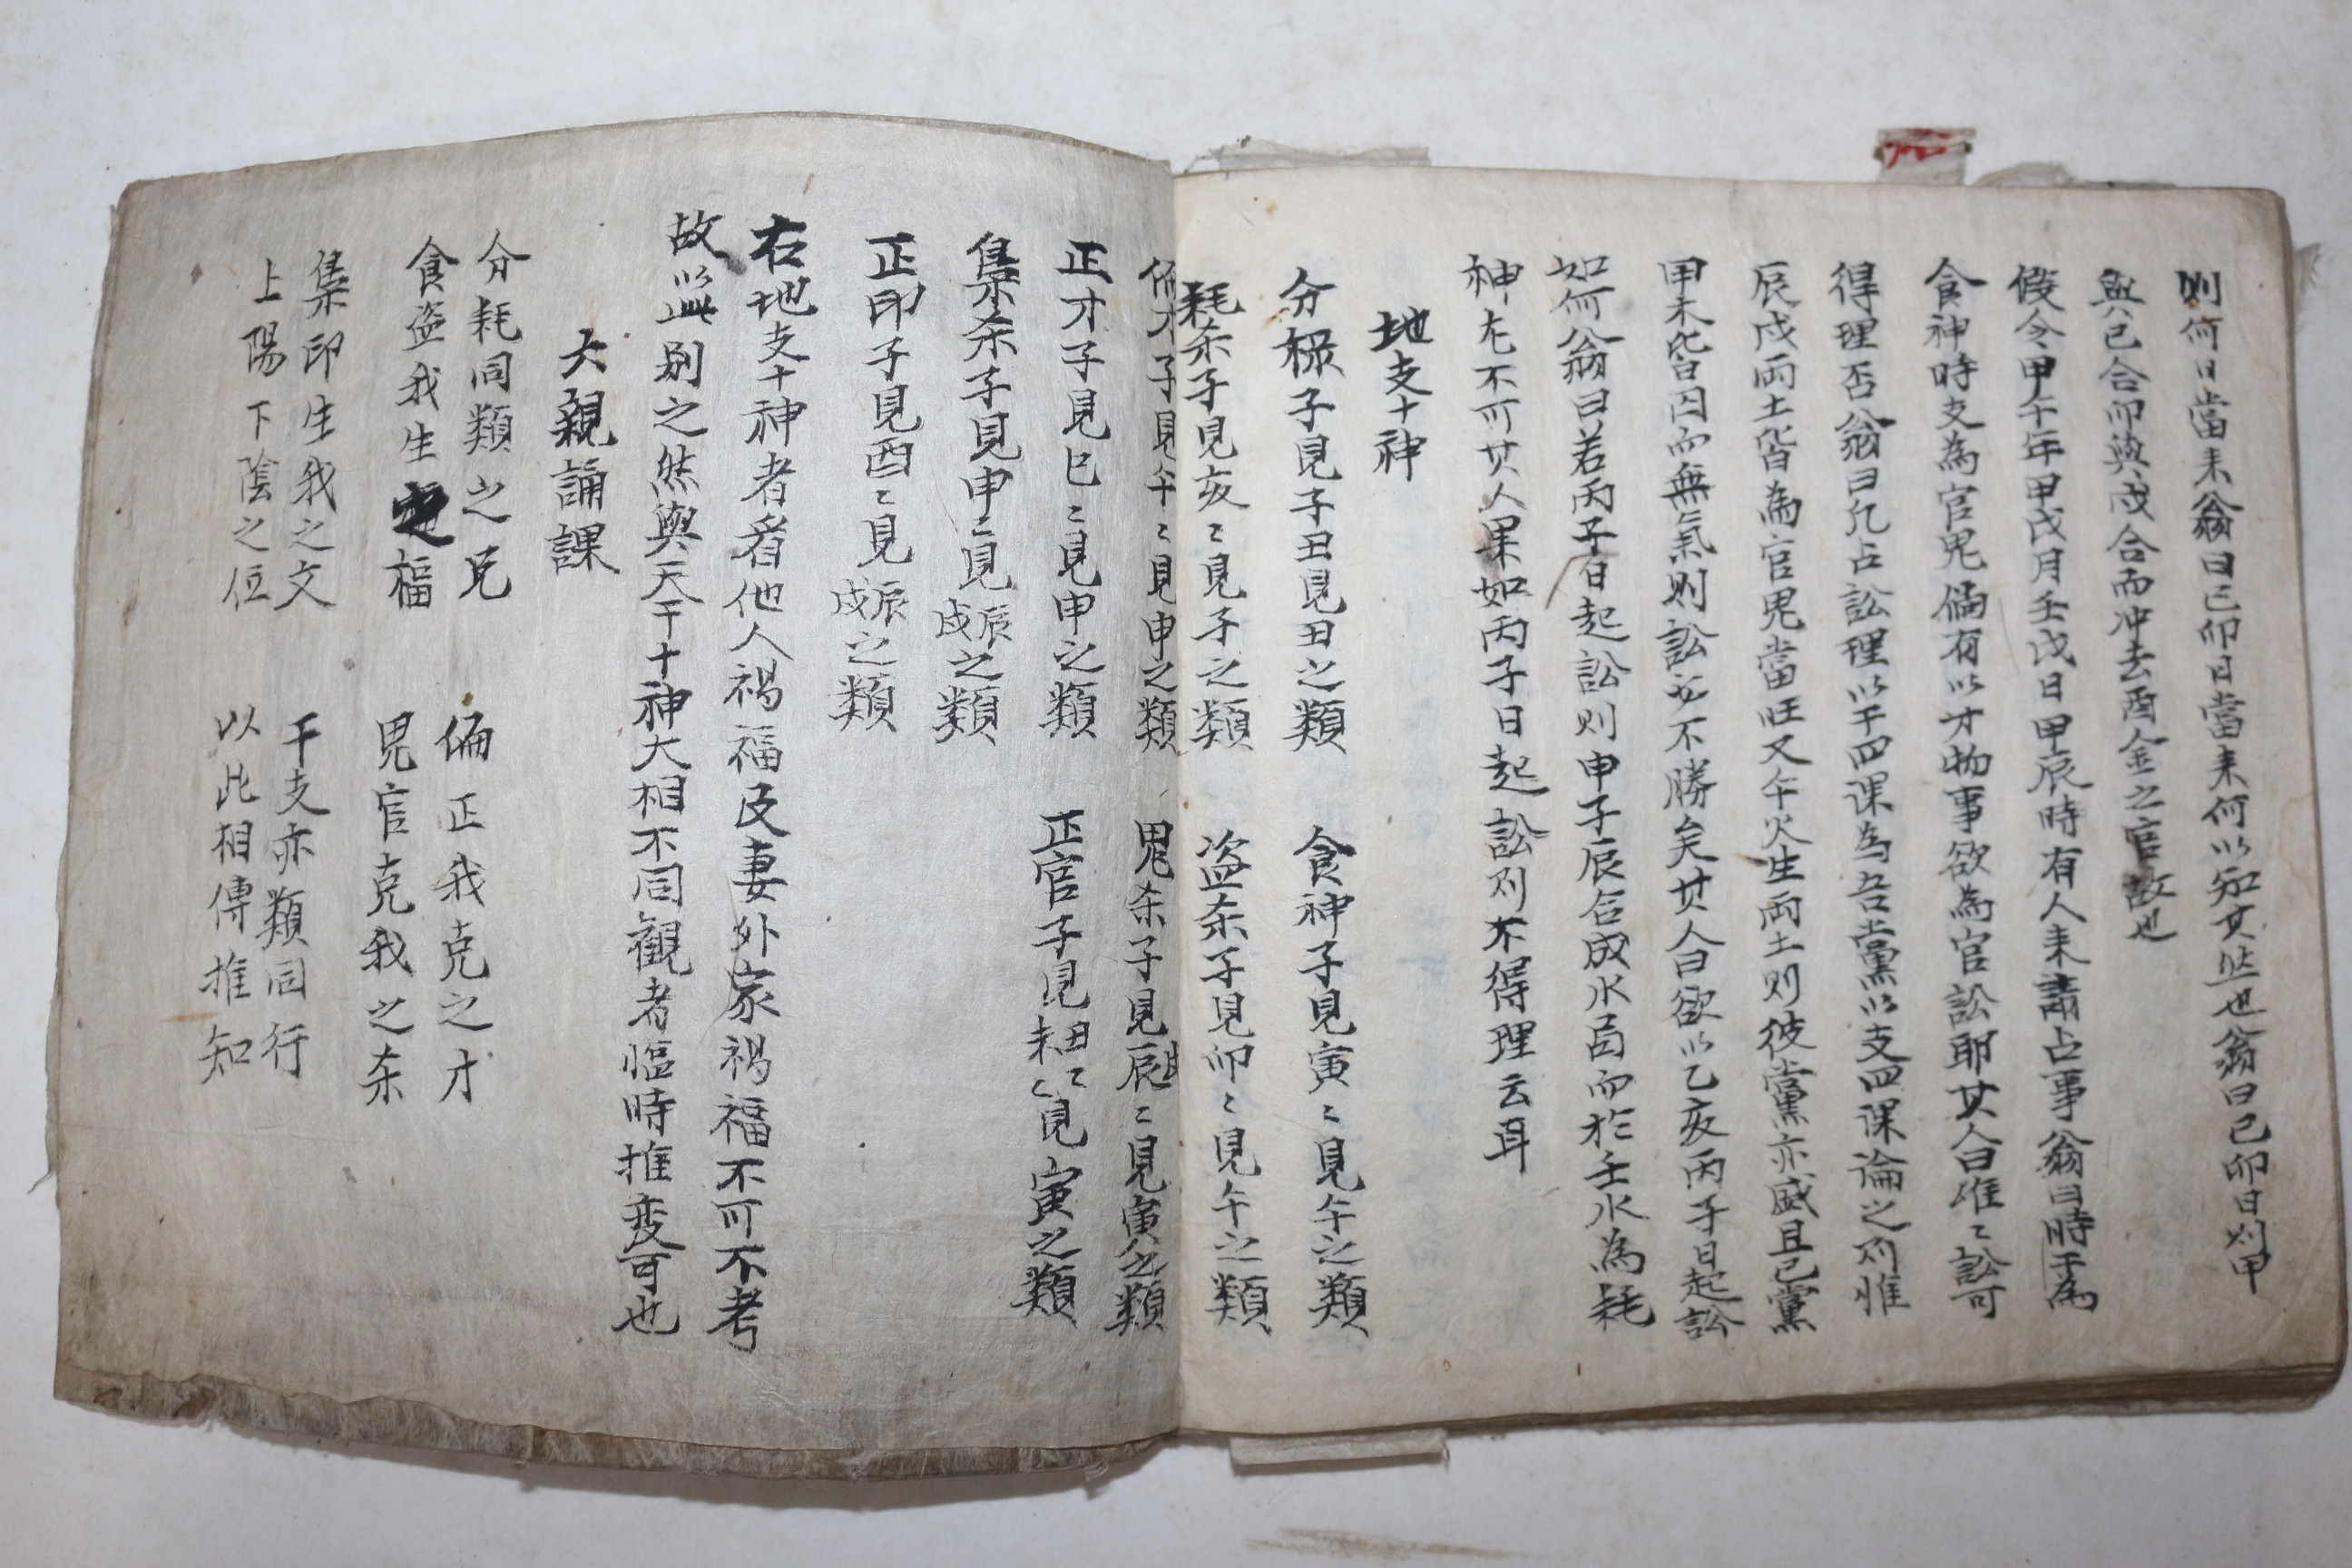 則何日當來翁曰己卯日當來何以知其然也翁曰己卯日則甲
與己合卯與戌合而冲去酉金之官故也
假令甲午年甲戌月壬戌日甲辰時有人來請占事翁曰時干為
食神時支為官鬼偏有以才物事欲為官訟耶其人曰唯〻訟可
得理否翁曰凡占訟理以干四課為吾黨以支四課論之則惟
辰戌兩土皆為官鬼當旺又午火生兩土則彼黨亦盛且己黨
甲木皆囚而無氣則訟必不勝矣其人曰欲以乙亥丙子日起訟
如何翁曰若丙子日起訟則申子辰合成水局而於壬水為耗
神尤不可其人果如丙子日起訟則不得理云耳
地支十神
分祿子見子丑見丑之類 食神子見寅〻見午之類
耗杀子見亥〻見子之類 盗杀子見卯〻見午之類
偏才子見午〻見申之類 鬼杀子見辰〻見寅之類
正才子見巳〻見申之類 正官子見丑未〻見寅之類
梟杀子見申〻見辰戌之類
正印子見酉〻見辰戌之類
右地支十神者看他人禍福及妻外家禍福不可不考
故以此别之然與天干十神大相不同觀者臨時推变可也
六親誦課
分耗同類之兄 偏正我克之才
食盗我生之福 鬼官克我之杀
梟印生我之文 干支亦類同行
上陽下陰之位 以此相傳推知